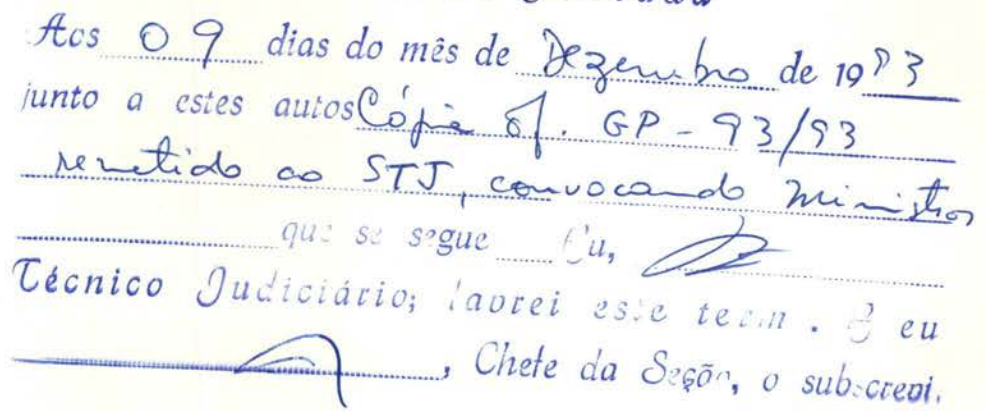 Aos 09 dias do mês de Dezembro de 1993
junto a estes autos Cópia of. GP - 93/93
remetido ao STJ, convocando Ministros
que se segue Eu,
Técnico Judiciário; lavrei este term . E eu
, Chefe da Seção, o subscrevi.